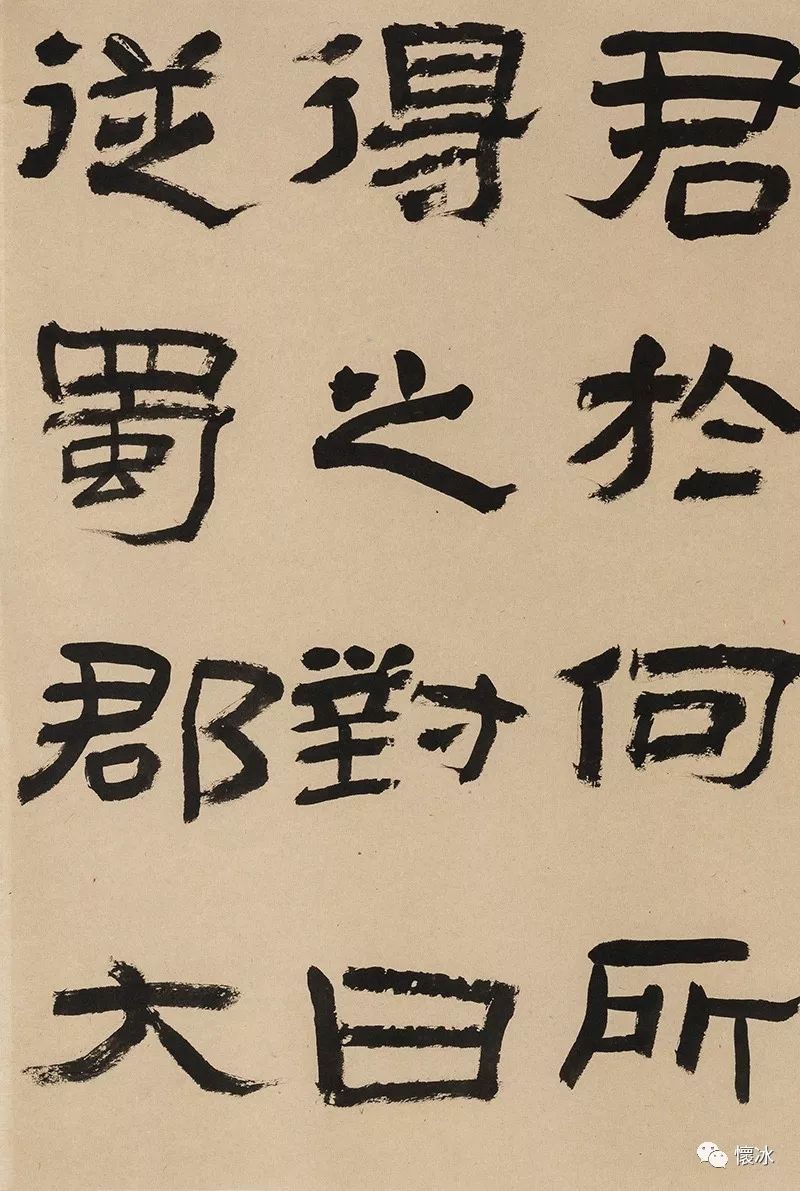 君於何所
得之對曰
從蜀郡大
懷冰